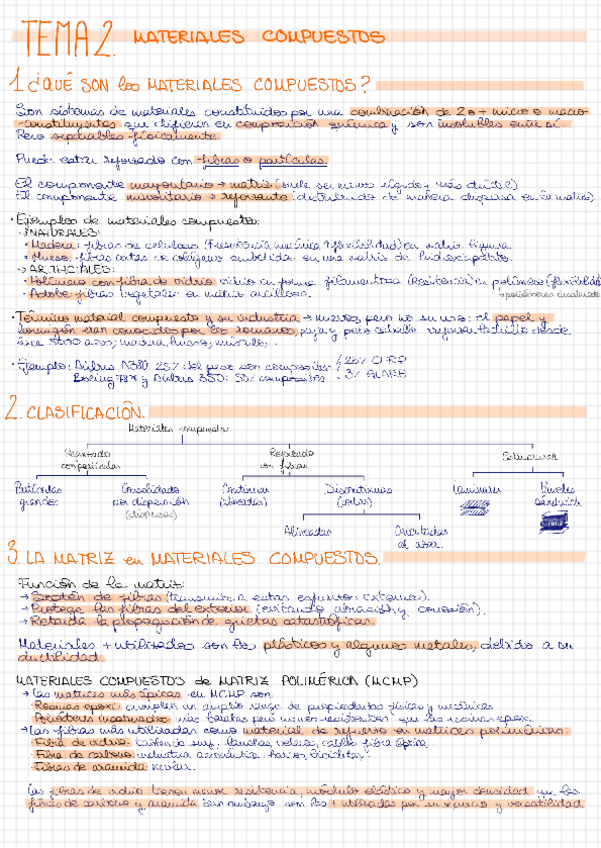 TEMA 2. MATERIALES COMPUESTOS
1. ¿QUÉ SON los MATERIALES COMPUESTOS?
Son sistemas de materiales constituidos por una combinación de 2 o + micro o macro
-constituyentes que difieren en composición química y son insolubles entre sí
Pero separables físicamente.
Puede estar reforzado con fibras o partículas.
El componente mayoritario → matriz (suele ser menos rígida y más dúctil)
El componente minoritario → refuerzo (distribuido de manera dispersa en la matriz)
· Ejemplos de materiales compuestos:
→ NATURALES:
· Madera: fibras de celulosa (resistencia mecánica y flexibilidad) en matriz lignina.
· Hueso: fibras cortas de colágeno embebida en una matriz de hidroxiapatito.
→ ARTIFICIALES:
· Polímeros con fibra de vidrio: vidrio en forma filamentosa (resistencia) en polímero (flexibilidad
· Adobe: fibras vegetales en matriz arcillosa.
· Término material compuesto y su industria → nuevos pero no su uso: el papel y
hormigón eran conocidos por los romanos, paja y pelo caballo reforzar ladrillo desde
hace 5000 años, madera, hueso, músculo...
· Ejemplo: Airbus A380 25% del peso son composites
Boeing 787 y Airbus 350: 50% composites
3% GLARE
2. CLASIFICACIÓN.
Materiales compuestos
Reforzado con partículas
Reforzado con fibras
Estructural
Partículas grandes
Consolidado por dispersión (dispersas)
Continuas (alineadas)
Discontinuas (cortas)
Laminares
Paneles sándwich
Alineadas
Orientadas al azar.
3. LA MATRIZ en MATERIALES COMPUESTOS.
Función de la matriz:
→ Sostén de fibras (transmitir a estas esfuerzos externos).
→ Protege las fibras del exterior (evitando abrasión y corrosión).
→ Retarda la propagación de grietas catastróficas.
Materiales + utilizados son los plásticos y algunos metales, debido a su
ductilidad
MATERIALES COMPUESTOS de MATRIZ POLIMÉRICA (MCMP)
→ Las matrices más típicas en MCMP son
· Resinas epoxi: cumplen un amplio rango de propiedades físicas y mecánicas
· Poliésteres insaturados: más baratas pero menos resistentes que las resinas epoxi.
→ Las fibras más utilizadas como material de refuerzo en matrices poliméricas:
· Fibra de vidrio: tablas de surf, lanchas, veleros, cables fibra óptica
· Fibra de carbono: industria aeronáutica, barcos, bicicletas.
· Fibras de aramida: kevlar.
Las fibras de vidrio tienen menor resistencia, módulo elástico y mayor densidad que las
fibras de carbono y aramida sin embargo son las + utilizadas por su precio y versatilidad